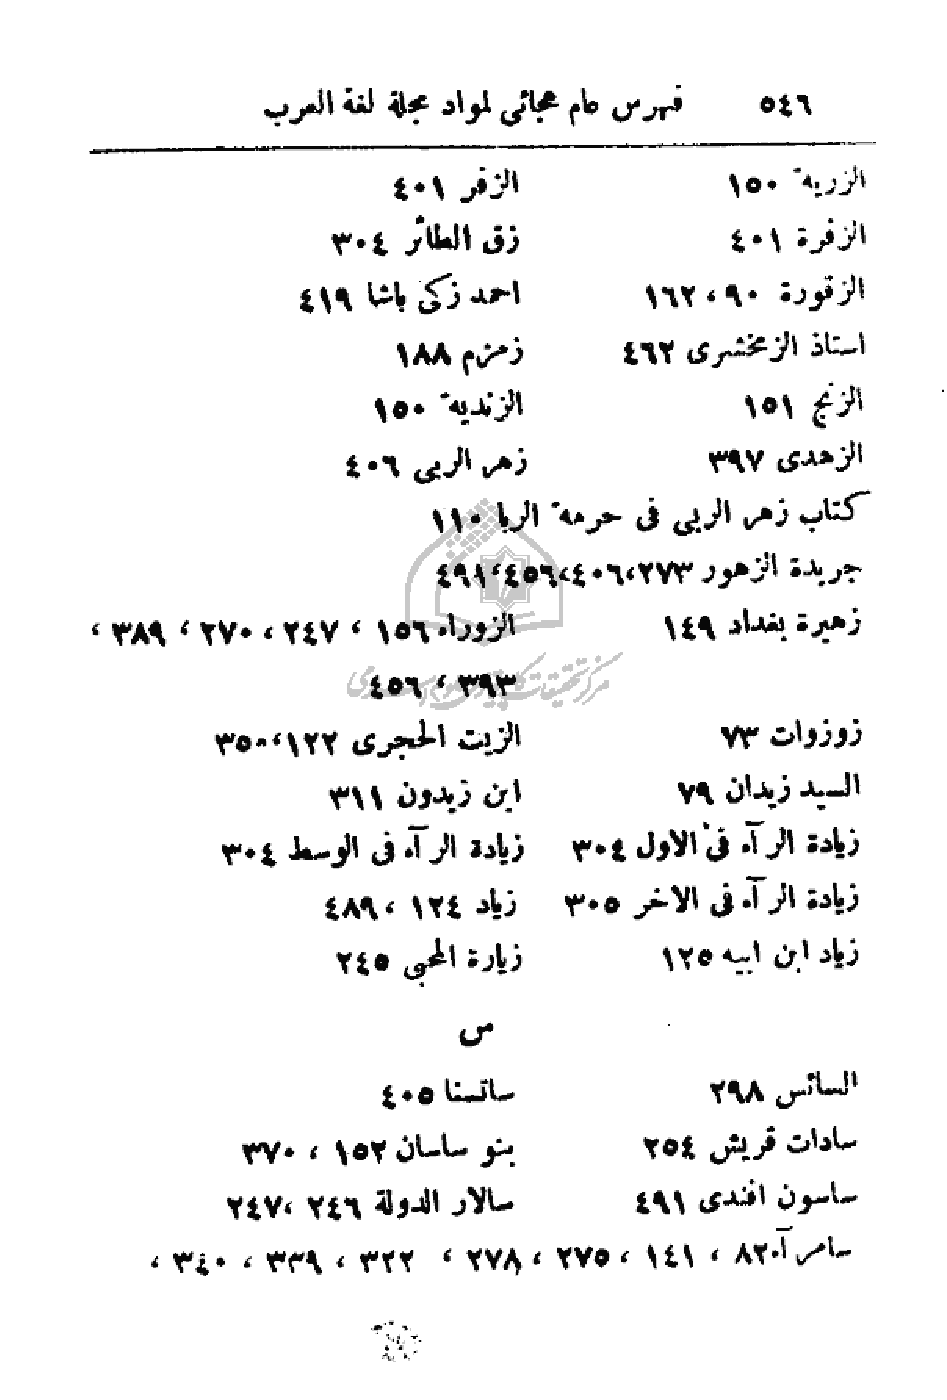 ٥٤٦ فهرس عام هجائي لمواد مجلة لغة العرب
الزريبة ١٥٠ الزفر ٤٠١
الزفرة ٤٠١ زق الطائر ٣٠٤
الزقورة ٩٠، ١٦٢ احمد زكي باشا ٤١٩
استاذ الزمخشرى ٤٦٢ زمزم ١٨٨
الزنج ١٥١ الزنديه ١٥٠
الزهدى ٣٩٧ زهر الربى ٤٠٦
كتاب زهر الربى فى حرمة الربا ١١٠
جريدة الزهور ٢٧٣،٤٠٦،٤٥٦،٤٩١
زهيرة بغداد ١٤٩ الزوراء ١٥٦ ، ٢٤٧ ، ٢٧٠ ، ٣٨٩ ،
٣٩٣ ، ٤٥٦
زوزوات ٧٣ الزيت الحجرى ١٢٢،٣٥٠
السيد زيدان ٧٩ ابن زيدون ٣١١
زيادة الرآء فى الاول ٣٠٤ زيادة الرآء فى الوسط ٣٠٤
زيادة الرآء فى الاخر ٣٠٥ زياد ١٢٤ ، ٤٨٩
زياد ابن ابيه ١٢٥ زيارة المحبى ٢٤٥
س
السائس ٢٩٨ ساتسنا ٤٠٥
سادات قريش ٢٥٤ بنو ساسان ١٥٢ ، ٣٧٠
ساسون افندى ٤٩١ سالار الدولة ٢٤٦ ،٢٤٧
سامرآء ٨٢ ، ١٤١ ، ٢٧٥ ، ٢٧٨ ، ٣٢٢ ، ٣٣٩ ، ٣٤٠ ،